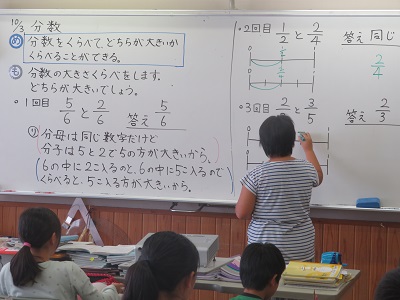 10/3 分数
め 分数をくらべて、どちらが大きいか
くらべることができる。
も 分数の大きさくらべをします。
どちらが大きいでしょう。
○1回目 5/6と2/6 答え 5/6
り 分母は同じ数字だけど
分子は5と2で5の方が大きいから、
(6の中に2こ入るのと、6の中に5こ入るので
くらべると、5こ入る方が大きいから。
○2回目 1/2と2/4 答え 同じ
2/4
○3回目 2/3と3/5 答え 2/3